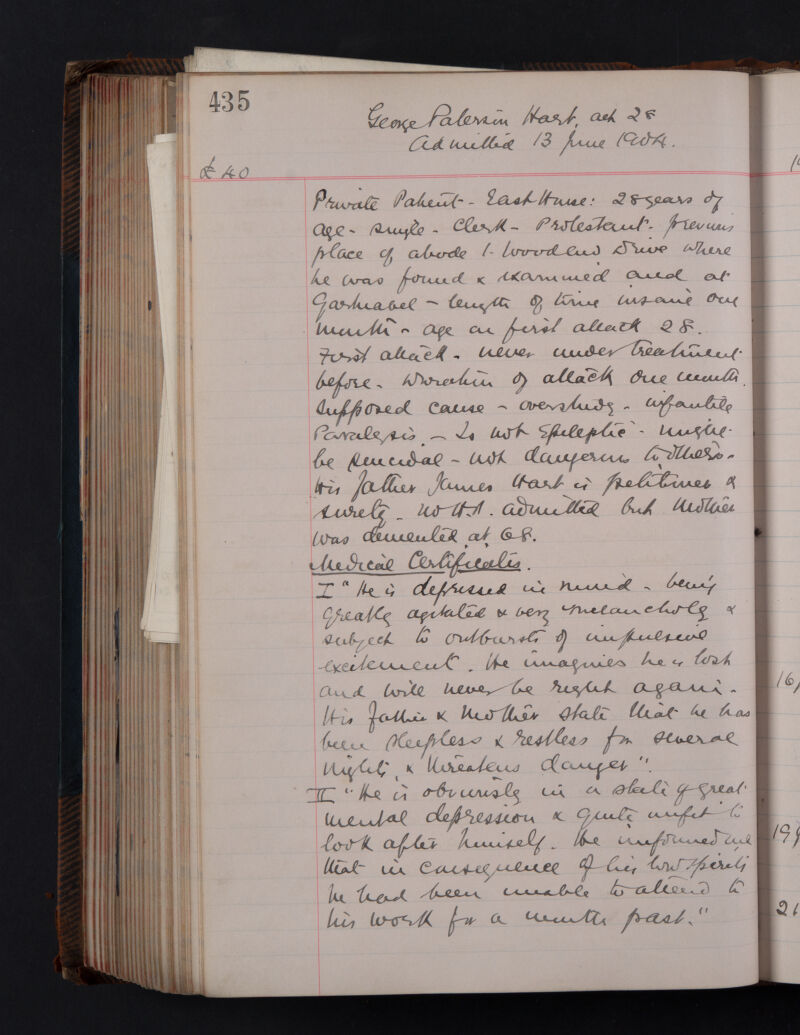 435
George Paterson Hart, aet 28
Admitted 13 June 1904.
£40
Private Patient - East House: 28 years of
age - single - Clerk - Protestant - previous
place of abode 1 Woodend Drive where
he was found & examined and at
Gartnavel - length of time insane one
month - age on first attack 28.
First attack - never under treatment
before. Duration of attack one month.
Supposed cause - overstudy - infantile
Paralysis. - Is not Epileptic - might
be suicidal - not dangerous to others -
His father James Hart is petitioner &
surety - no H.I. admitted but Mother
was demented at 68.
Medical Certificates.
I "He is depressed in mind - being
greatly agitated & very melancholy &
subject to outbursts of impulsive
excitement. He imagines he is lost
and will never be right again -
His father & Mother state that he has
been sleepless & restless for several
nights, & threatens danger".
II "He is obviously in a state of great
mental depression & quite unfit to
look after himself. He informed me
that in consequence of his low spirits
he had been unable to attend to
his work for a month past."
16/
19
21